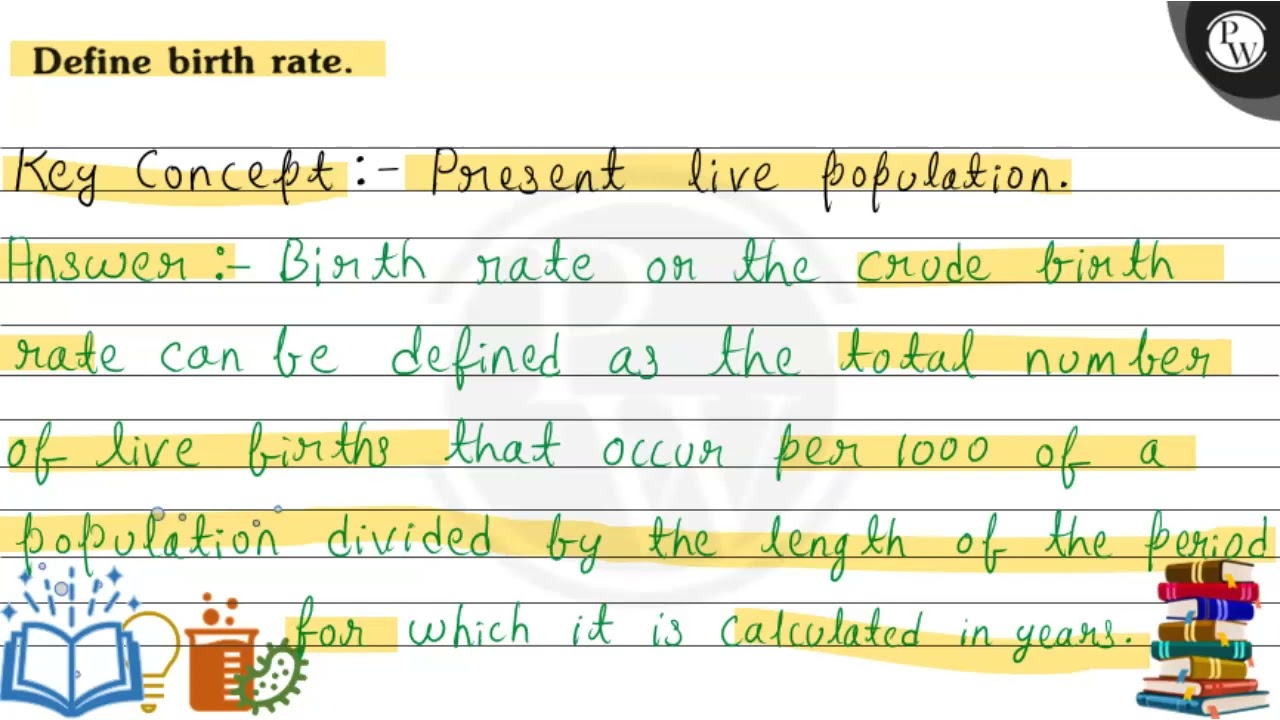 Define birth rate.
PW
Key Concept :- Present live population.
Answer :- Birth rate or the crude birth
rate can be defined as the total number
of live births that occur per 1000 of a
population divided by the length of the period
for which it is calculated in years.